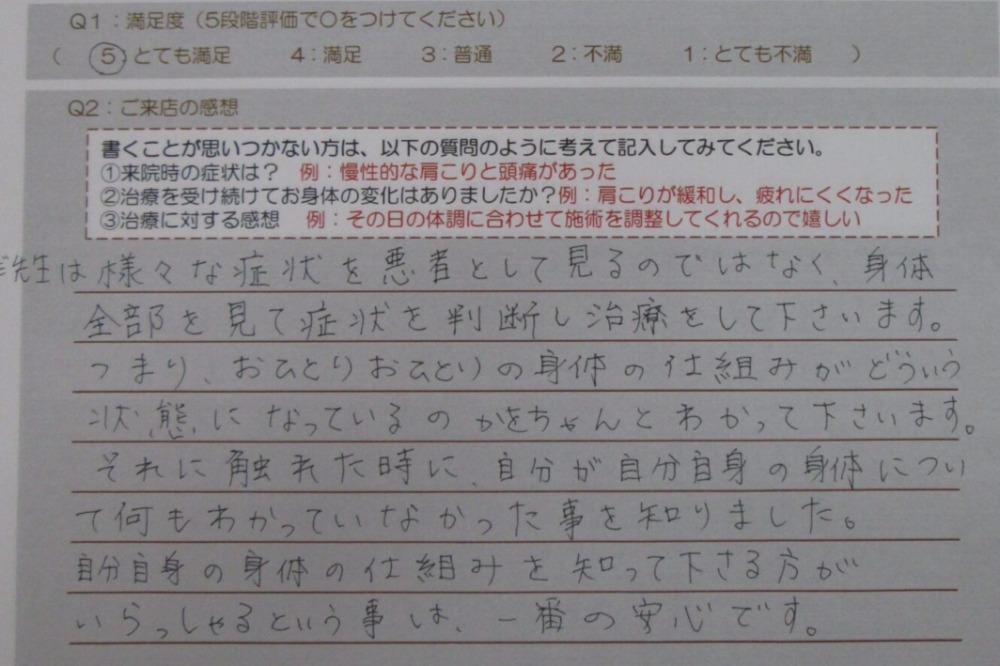 Q1：満足度（5段階評価で○をつけてください）
（ 5：とても満足 4：満足 3：普通 2：不満 1：とても不満 ）
Q2：ご来店の感想
書くことが思いつかない方は、以下の質問のように考えて記入してみてください。
①来院時の症状は？ 例：慢性的な肩こりと頭痛があった
②治療を受け続けてお身体の変化はありましたか？例：肩こりが緩和し、疲れにくくなった
③治療に対する感想 例：その日の体調に合わせて施術を調整してくれるので嬉しい
先生は様々な症状を悪者として見るのではなく、身体
全部を見て症状を判断し治療をして下さいます。
つまり、おひとりおひとりの身体の仕組みがどういう
状態になっているのかをちゃんとわかって下さいます。
それに触れた時に、自分が自分自身の身体につい
て何もわかっていなかった事を知りました。
自分自身の身体の仕組みを知って下さる方が
いらっしゃるという事は、一番の安心です。